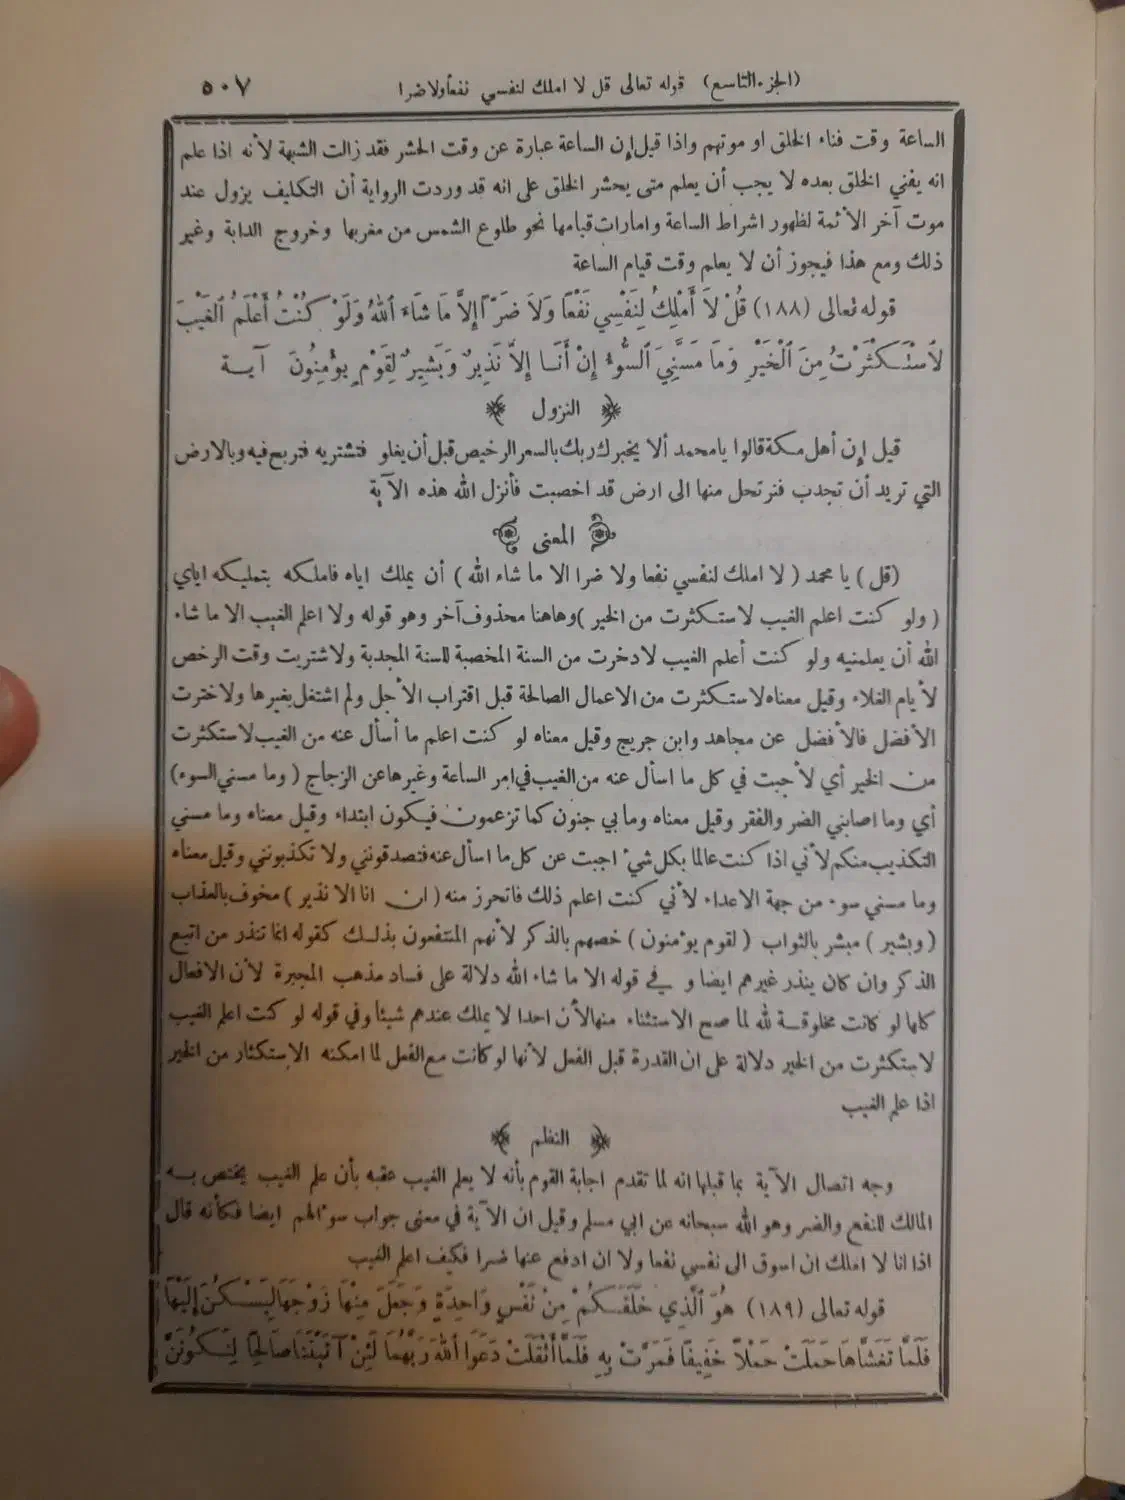 (الجزء التاسع) قوله تعالى قل لا املك لنفسي نفعاً ولا ضرا ٥٠٧
الساعة وقت فناء الخلق او موتهم واذا قيل إن الساعة عبارة عن وقت الحشر فقد زالت الشبهة لأنه اذا علم
انه يفني الخلق بعده لا يجب أن يعلم متى يحشر الخلق على انه قد وردت الرواية أن التكليف يزول عند
موت آخر الأئمة لظهور اشراط الساعة وامارات قيامها نحو طلوع الشمس من مغربها وخروج الدابة وغير
ذلك ومع هذا فيجوز أن لا يعلم وقت قيام الساعة
قوله تعالى (١٨٨) قُلْ لاَ أَمْلِكُ لِنَفْسِي نَفْعًا وَلاَ ضَرًّا إِلاَّ مَا شَاءَ ٱللهُ وَلَوْ كُنْتُ أَعْلَمُ ٱلْغَيْبَ
لاَسْتَكْثَرْتُ مِنَ ٱلْخَيْرِ وَمَا مَسَّنِيَ ٱلسُّوءُ إِنْ أَنَا إِلاَّ نَذِيرٌ وَبَشِيرٌ لِقَوْمٍ يُؤْمِنُونَ آية
النزول
قيل إن أهل مكة قالوا يا محمد ألا يخبرك ربك بالسعر الرخيص قبل أن يغلو فتشتريه فتربع فيه وبالارض
التي تريد أن تجدب فنرتحل منها الى ارض قد اخصبت فأنزل الله هذه الآية
المعنى
(قل) يا محمد (لا املك لنفسي نفعا ولا ضرا الا ما شاء الله) أن يملك اياه فاملكه بتمليكه اياي
(ولو كنت اعلم الغيب لاستكثرت من الخير) وهاهنا محذوف آخر وهو قوله ولا اعلم الغيب الا ما شاء
الله أن يعلمنيه ولو كنت أعلم الغيب لادخرت من السنة المخصبة للسنة المجدبة ولاشتريت وقت الرخص
لأيام الغلاء وقيل معناه لاستكثرت من الاعمال الصالحة قبل اقتراب الأجل ولم اشتغل بغيرها ولاخترت
الأفضل فالأفضل عن مجاهد وابن جريج وقيل معناه لو كنت اعلم ما أسأل عنه من الغيب لاستكثرت
من الخير أي لأجبت في كل ما اسأل عنه من الغيب في امر الساعة وغيرها عن الزجاج (وما مسني السوء)
أي وما اصابني الضر والفقر وقيل معناه وما بي جنون كما تزعمون فيكون ابتداء وقيل معناه وما مسني
التكذيب منكم لأني اذا كنت عالما بكل شيء اجبت عن كل ما اسأل عنه فتصدقونني ولا تكذبونني وقيل معناه
وما مسني سوء من جهة الاعداء لأني كنت اعلم ذلك فاتحرز منه (ان انا الا نذير) مخوف بالعذاب
(وبشير) مبشر بالثواب (لقوم يؤمنون) خصهم بالذكر لأنهم المنتفعون بذلك كقوله انما تنذر من اتبع
الذكر وان كان ينذر غيرهم ايضا وفي قوله الا ما شاء الله دلالة على فساد مذهب المجبرة لأن الافعال
كلها لو كانت مخلوقة لله لما صح الاستثناء منها لأن احدا لا يملك عندهم شيئا وفي قوله لو كنت اعلم الغيب
لاستكثرت من الخير دلالة على ان القدرة قبل الفعل لأنها لو كانت مع الفعل لما امكنه الاستكثار من الخير
اذا علم الغيب
النظم
وجه اتصال الآية بما قبلها انه لما تقدم اجابة القوم بأنه لا يعلم الغيب عقبه بأن علم الغيب يختص به
المالك للنفع والضر وهو الله سبحانه عن ابي مسلم وقيل ان الآية في معنى جواب سؤالهم ايضا فكأنه قال
اذا انا لا املك ان اسوق الى نفسي نفعا ولا ان ادفع عنها ضرا فكيف اعلم الغيب
قوله تعالى (١٨٩) هُوَ ٱلَّذِي خَلَقَكُمْ مِنْ نَفْسٍ وَاحِدَةٍ وَجَعَلَ مِنْهَا زَوْجَهَا لِيَسْكُنَ إِلَيْهَا
فَلَمَّا تَغَشَّاهَا حَمَلَتْ حَمْلاً خَفِيفًا فَمَرَّتْ بِهِ فَلَمَّا أَثْقَلَتْ دَعَوَا ٱللهَ رَبَّهُمَا لَئِنْ آتَيْتَنَا صَالِحًا لَنَكُونَنَّ